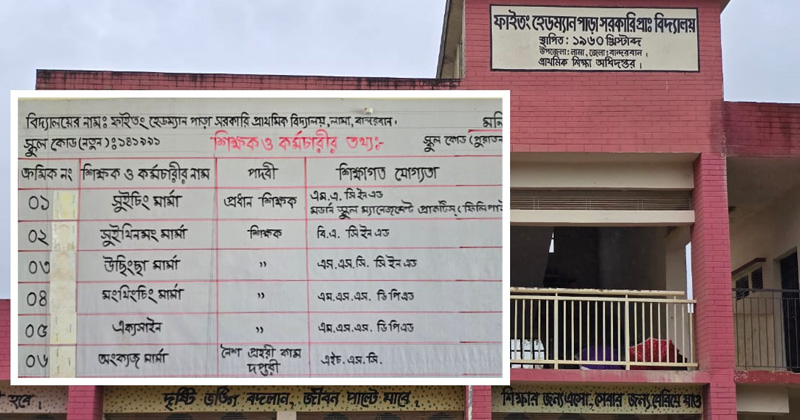 ফাইতং হেডম্যান পাড়া সরকারি প্রাঃ বিদ্যালয়
স্থাপিত : ১৯৬০ খ্রিস্টাব্দ
উপজেলা : লামা, জেলা : বান্দরবান ।
প্রাথমিক শিক্ষা অধিদপ্তর ।
বিদ্যালয়ের নামঃ ফাইতং হেডম্যান পাড়া সরকারি প্রাথমিক বিদ্যালয়, লামা, বান্দরবান ।
স্কুল কোড (নতুন) : ১৪১১১১ শিক্ষক ও কর্মচারীর তথ্যঃ- স্কুল কোড (পুরাতন
ক্রমিক নং শিক্ষক ও কর্মচারীর নাম পদবী শিক্ষাগত যোগ্যতা
০১ সুইচিং মার্মা প্রধান শিক্ষক এম.এ. সি ইন এড
মডার্ন স্কুল ম্যানেজমেন্ট প্রাকটিস (ফিলিপাই
০২ সুইথিনমং মার্মা শিক্ষক বি.এ. সি ইন এড
০৩ উছিংছা মার্মা ,, এস.এস.সি. সি ইন এড
০৪ মংথিংচিং মার্মা ,, এম.এস.এস. ডি পি এড
০৫ এক্যসাইন ,, এম.এস.এস. ডি পি এড
০৬ অংক্যজ মার্মা নৈশ প্রহরী কাম এইচ.এস.সি.
দপ্তরী
হবে দৃষ্টি ভঙ্গি বদলান, জীবন পাল্টে যাবে । শিক্ষার জন্য এসো, সেবার জন্য বেরিয়ে যাও